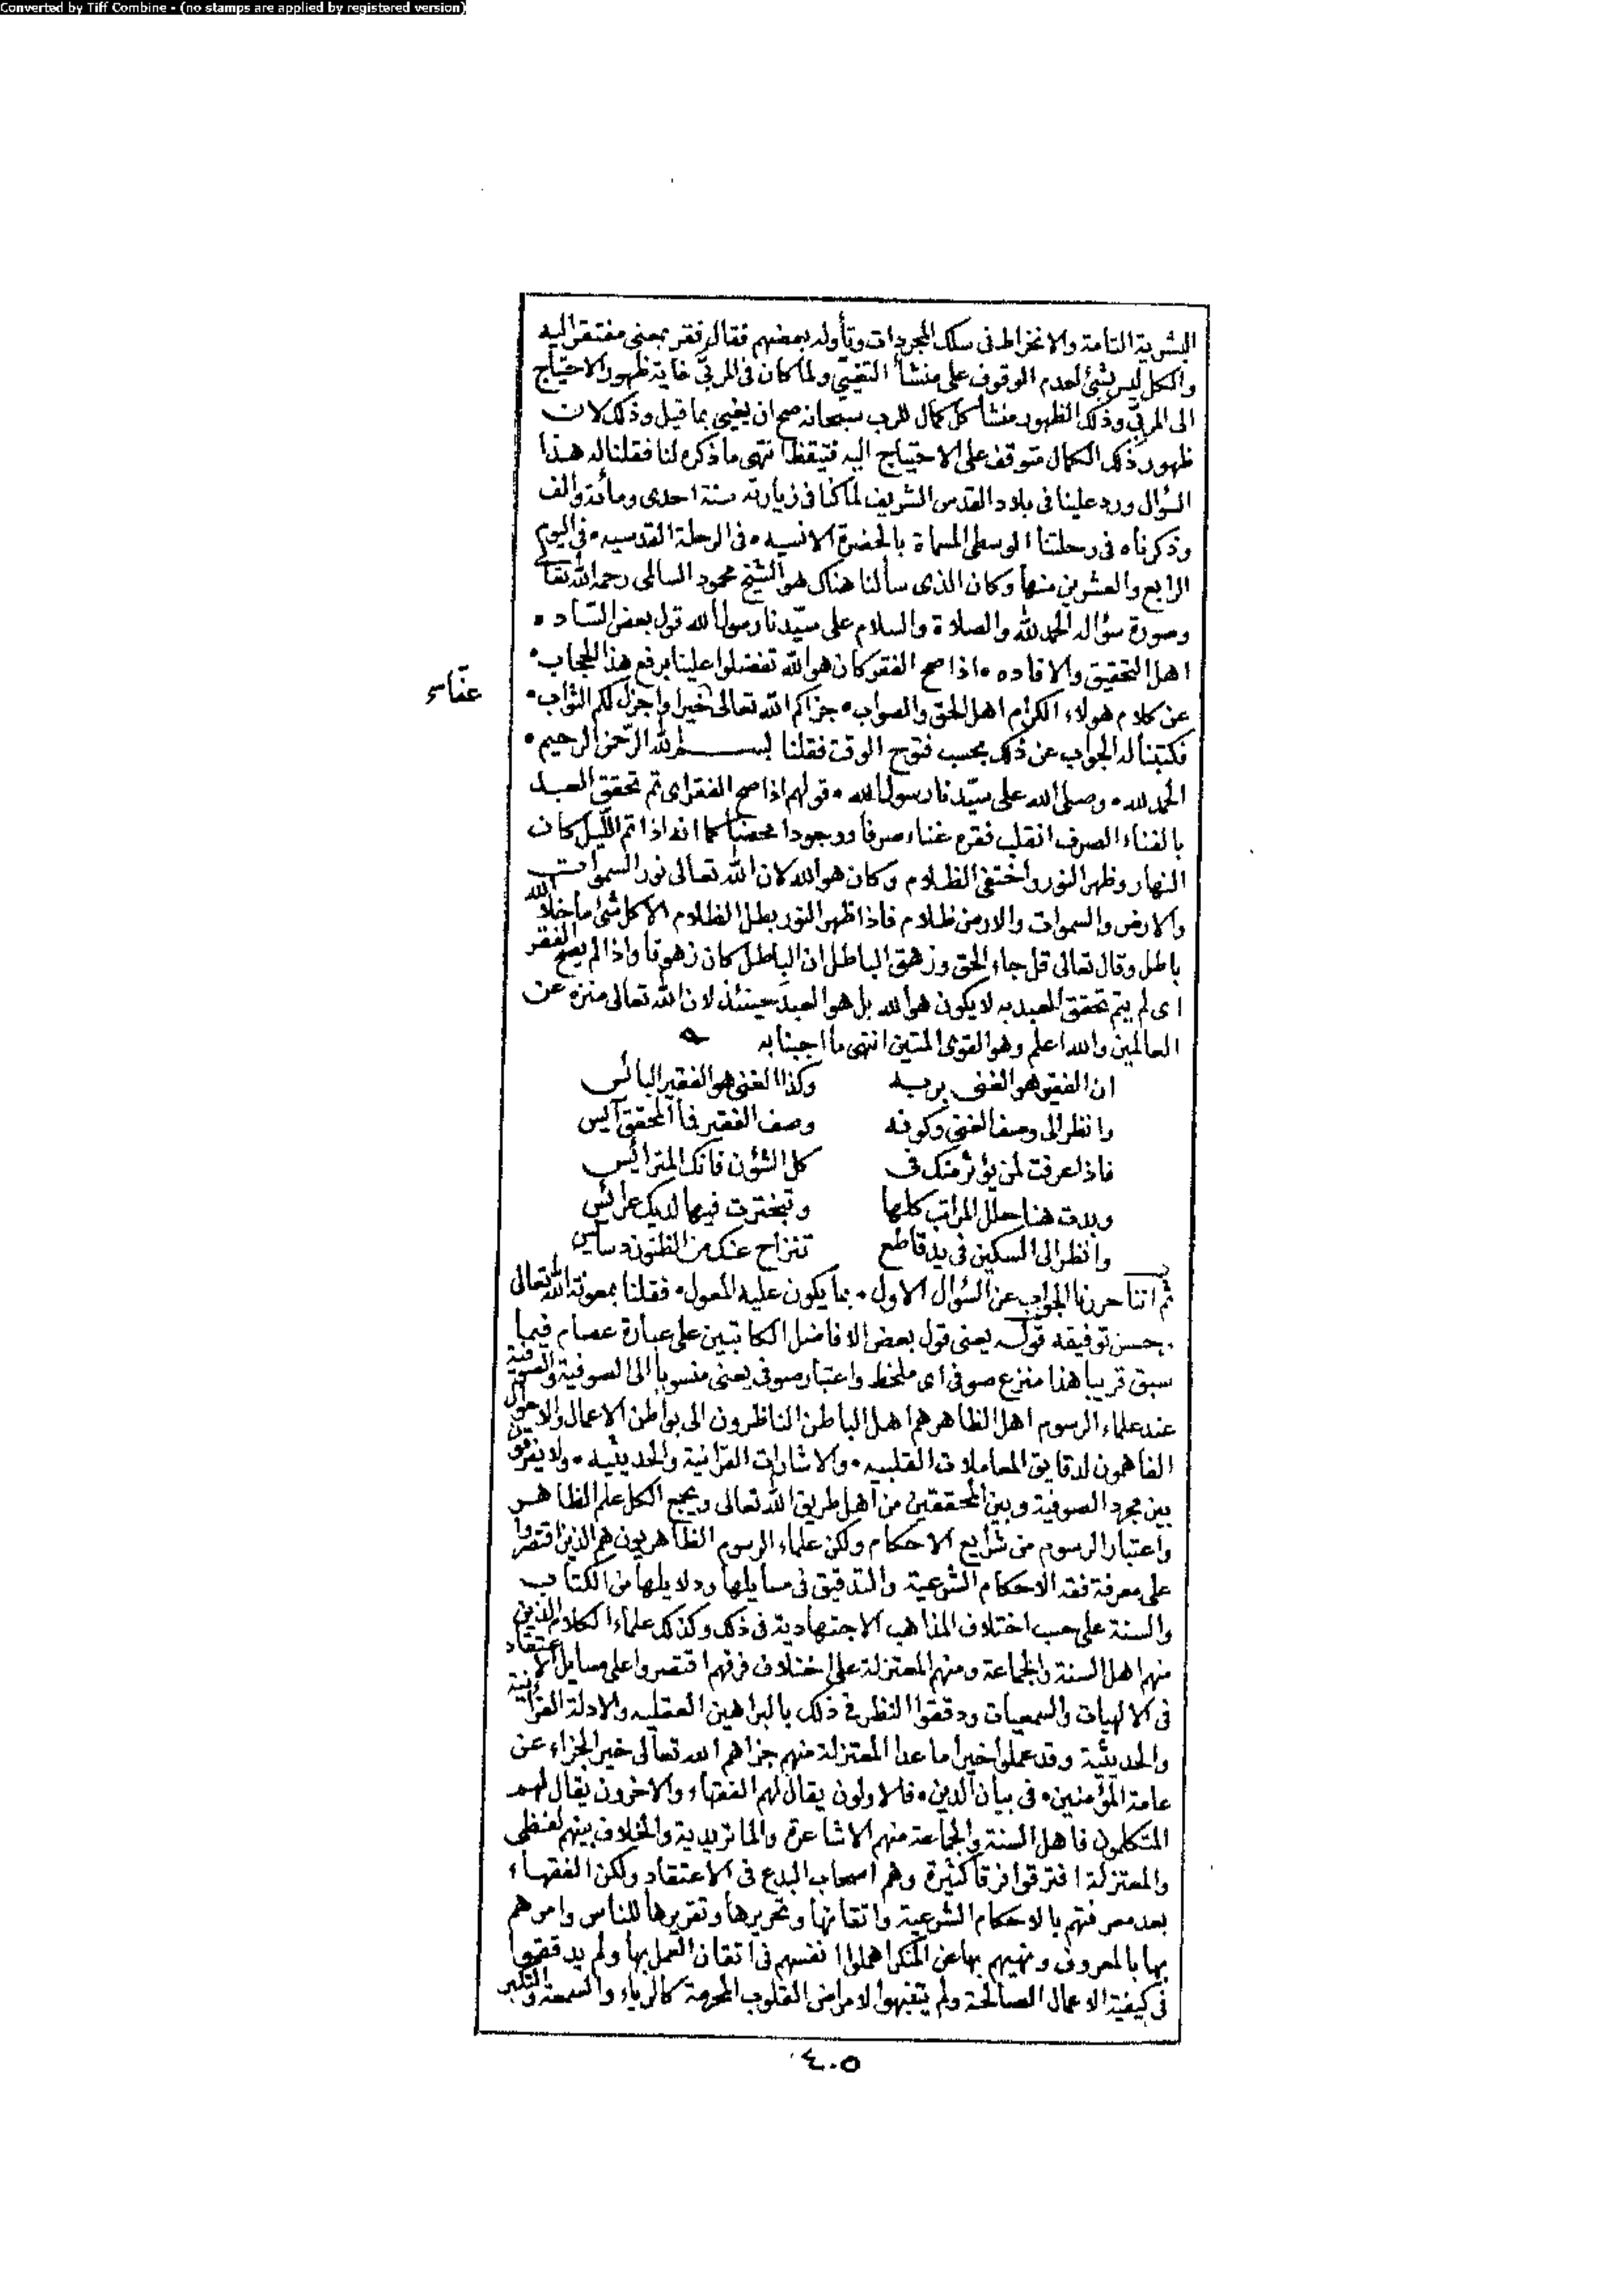 Converted by Tiff Combine - (no stamps are applied by registered version)
البشرية التامة والانخراط فى سلك المجردات وتأوله بعضهم فقال فقر بمعنى مفتقر اليه
والكل ليس بشئ لعدم الوقوف على منشأ التغيى ولما كان فى المربى غاية ظهور الاحتياج
الى المربى وذلك الظهور منشأ كل كمال للرب سبحانه صح ان يغيى بما قيل وذلك لان
ظهور ذلك الكمال متوقف على الاحتياج اليه فتيقظ انتهى ما ذكره لنا فقلنا له هذا
السؤال ورد علينا فى بلاد القدس الشريف لما كنا فى زيارته سنة احدى ومائة والف
وذكرناه فى رحلتنا الوسطى المسماة بالحضرة الانسيه • فى الرحلة القدسيه • فى اليوم
الرابع والعشرين منها وكان الذى سألنا هناك هو الشيخ محمود السالمى رحمه الله تعا
وصورة سؤاله الحمد لله والصلاة والسلام على سيّدنا رسول الله قول بعض السّاده •
اهل التحقيق والافاده • اذا صح الفقر كان هو الله تفضلوا علينا برفع هذا الحجاب •
عن كلام هولاء الكرام اهل الحق والصواب • جزاكم الله تعالى خيرا واجزل لكم الثواب •
فكتبنا له الجواب عن ذلك بحسب فتوح الوقت فقلنا بسم الله الرّحمن الرحيم •
الحمد لله • وصلى الله على سيّدنا رسول الله • قولهم اذا صح الفقر اى تم تحقق العبد
بالفناء الصرف انقلب فقره غناء صرفا ووجودا محضا كما انه اذا تم اللّيل كان
النهار وظهر النور واختفى الظلام وكان هو الله لان الله تعالى نور السموات
والارض والسموات والارض ظلام فاذا ظهر النور بطل الظلام الا كل شئ ما خلا الله
باطل وقال تعالى قل جاء الحق وزهق الباطل ان الباطل كان زهوقا واذا لم يصح الفقر
اى لم يتم تحقق العبد به لا يكون هو الله بل هو العبد حينئذ لان الله تعالى منزه عن
العالمين والله اعلم وهو القوى المتين انتهى ما اجبنا به
ان الفقير هو الغنى بربه وكذا الغنى هو الفقير البائس
وانظر الى وصف الغنى وكونه وصف الفقير فما المحقق آيس
فاذا عرفت لمن يؤثر منك فى كل الشؤن فانك المترائس
وبدت هنا حلل المراتب كلها وتبخترت فيها لديك عرائس
وانظر الى السكين فى يد قاطع تنزاح عنك من الظنون دسائس
ثم اننا حررنا الجواب عن السؤال الاول • بما يكون عليه المعول • فقلنا بمعونة الله تعالى
وحسن توفيقه قوله يعنى قول بعض الافاضل الكاتبين على عبارة عصام فيما
سبق قريبا هذا منزع صوفى اى ملحظ واعتبار صوفى يعنى منسوبا الى الصوفية والصوفية
عند علماء الرسوم اهل الظاهر هم اهل الباطن الناظرون الى بواطن الاعمال والاحوال
الفاهمون لدقايق المعاملات القلبيه • والاشارات القرآنية والحديثيه • ولا يفرقون
بين مجرد الصوفية وبين المحققين من اهل طريق الله تعالى ويجمع الكل علم الظاهر
واعتبار الرسوم من شرايع الاحكام ولكن علماء الرسوم الظاهريون هم الذين اقتصروا
على معرفة فقه الاحكام الشرعية والتدقيق فى مسايلها ودلايلها من الكتاب
والسنة على حسب اختلاف المذاهب الاجتهادية فى ذلك وكذلك علماء الكلام الذين
منهم اهل السنة والجماعة ومنهم المعتزلة على اختلاف فرقهم اقتصروا على مسايل الاعتقاد
فى الالهيات والسمعيات ودققوا النظر فى ذلك بالبراهين العقليه والادلة القرآنية
والحديثية وقد عملوا خيرا ما عدا المعتزلة منهم جزاهم الله تعالى خير الجزاء عن
عامة المؤمنين • فى بيان الدين • فالاولون يقال لهم الفقهاء والاخرون يقال لهم
المتكلمون فاهل السنة والجماعة منهم الاشاعرة والماتريدية والخلاف بينهم لفظى
والمعتزلة افترقوا فرقا كثيرة وهم اصحاب البدع فى الاعتقاد ولكن الفقهاء
بعد معرفتهم بالاحكام الشرعية واتقانها وتحريرها وتقريرها للناس وامرهم
بها بالمعروف ونهيهم بها عن المنكر اهملوا انفسهم فى اتقان العمل بها ولم يدققوا
فى كيفية الاعمال الصالحة ولم يتنبهوا لامراض القلوب المحرمة كالرياء والسمعة والتكبر
٤٠٥